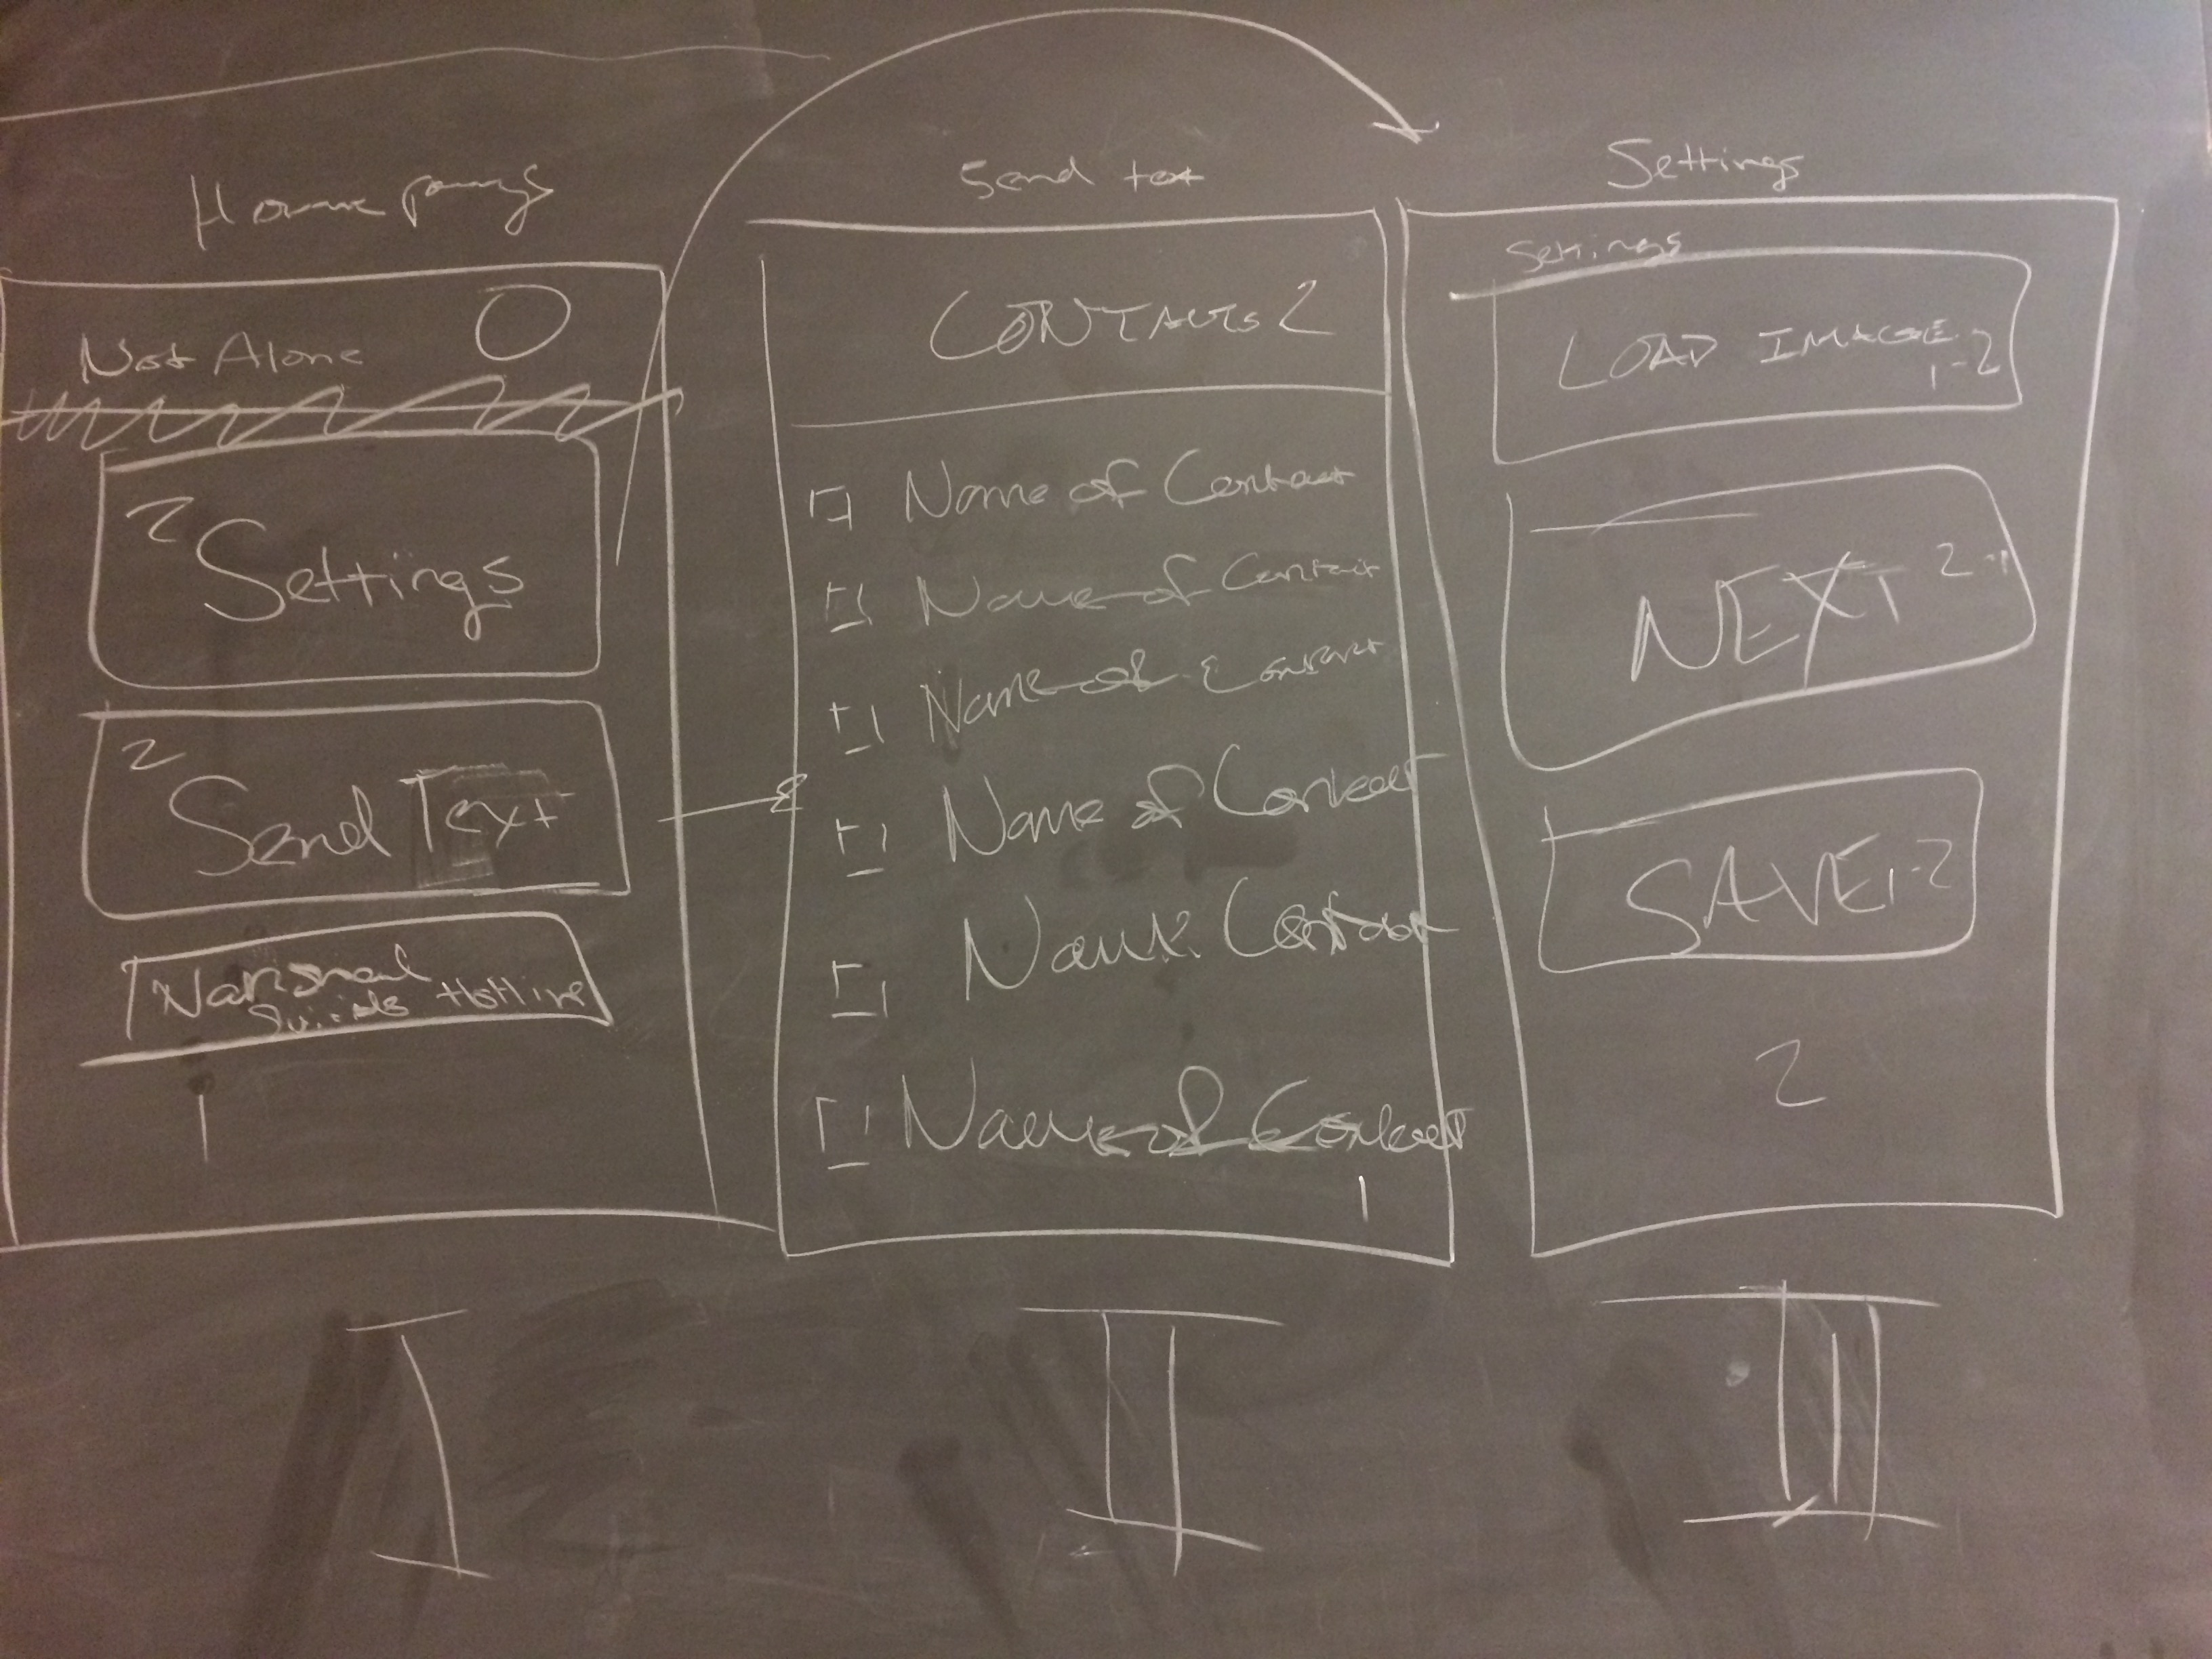 Home page
Not Alone
2
Settings
2
Send Text
National
Suicide Hotline
1
I
Send text
CONTACTS 2
Name of Contact
Name of Contact
Name of Contact
Name of Contact
Name Contact
Name of Contact
1
II
Settings
Settings
LOAD IMAGE
1-2
NEXT 2-1
SAVE 1-2
2
III